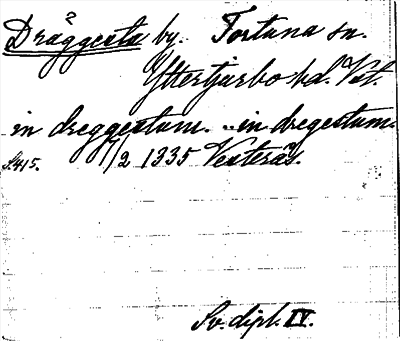 Dräggesta by. Fortuna sn.
Yttertjurbo hd. Vstm.
in dreggestum. .. in dregestum.
S.415. 7/2 1335 Vesterås.
Sv. dipl. IV.